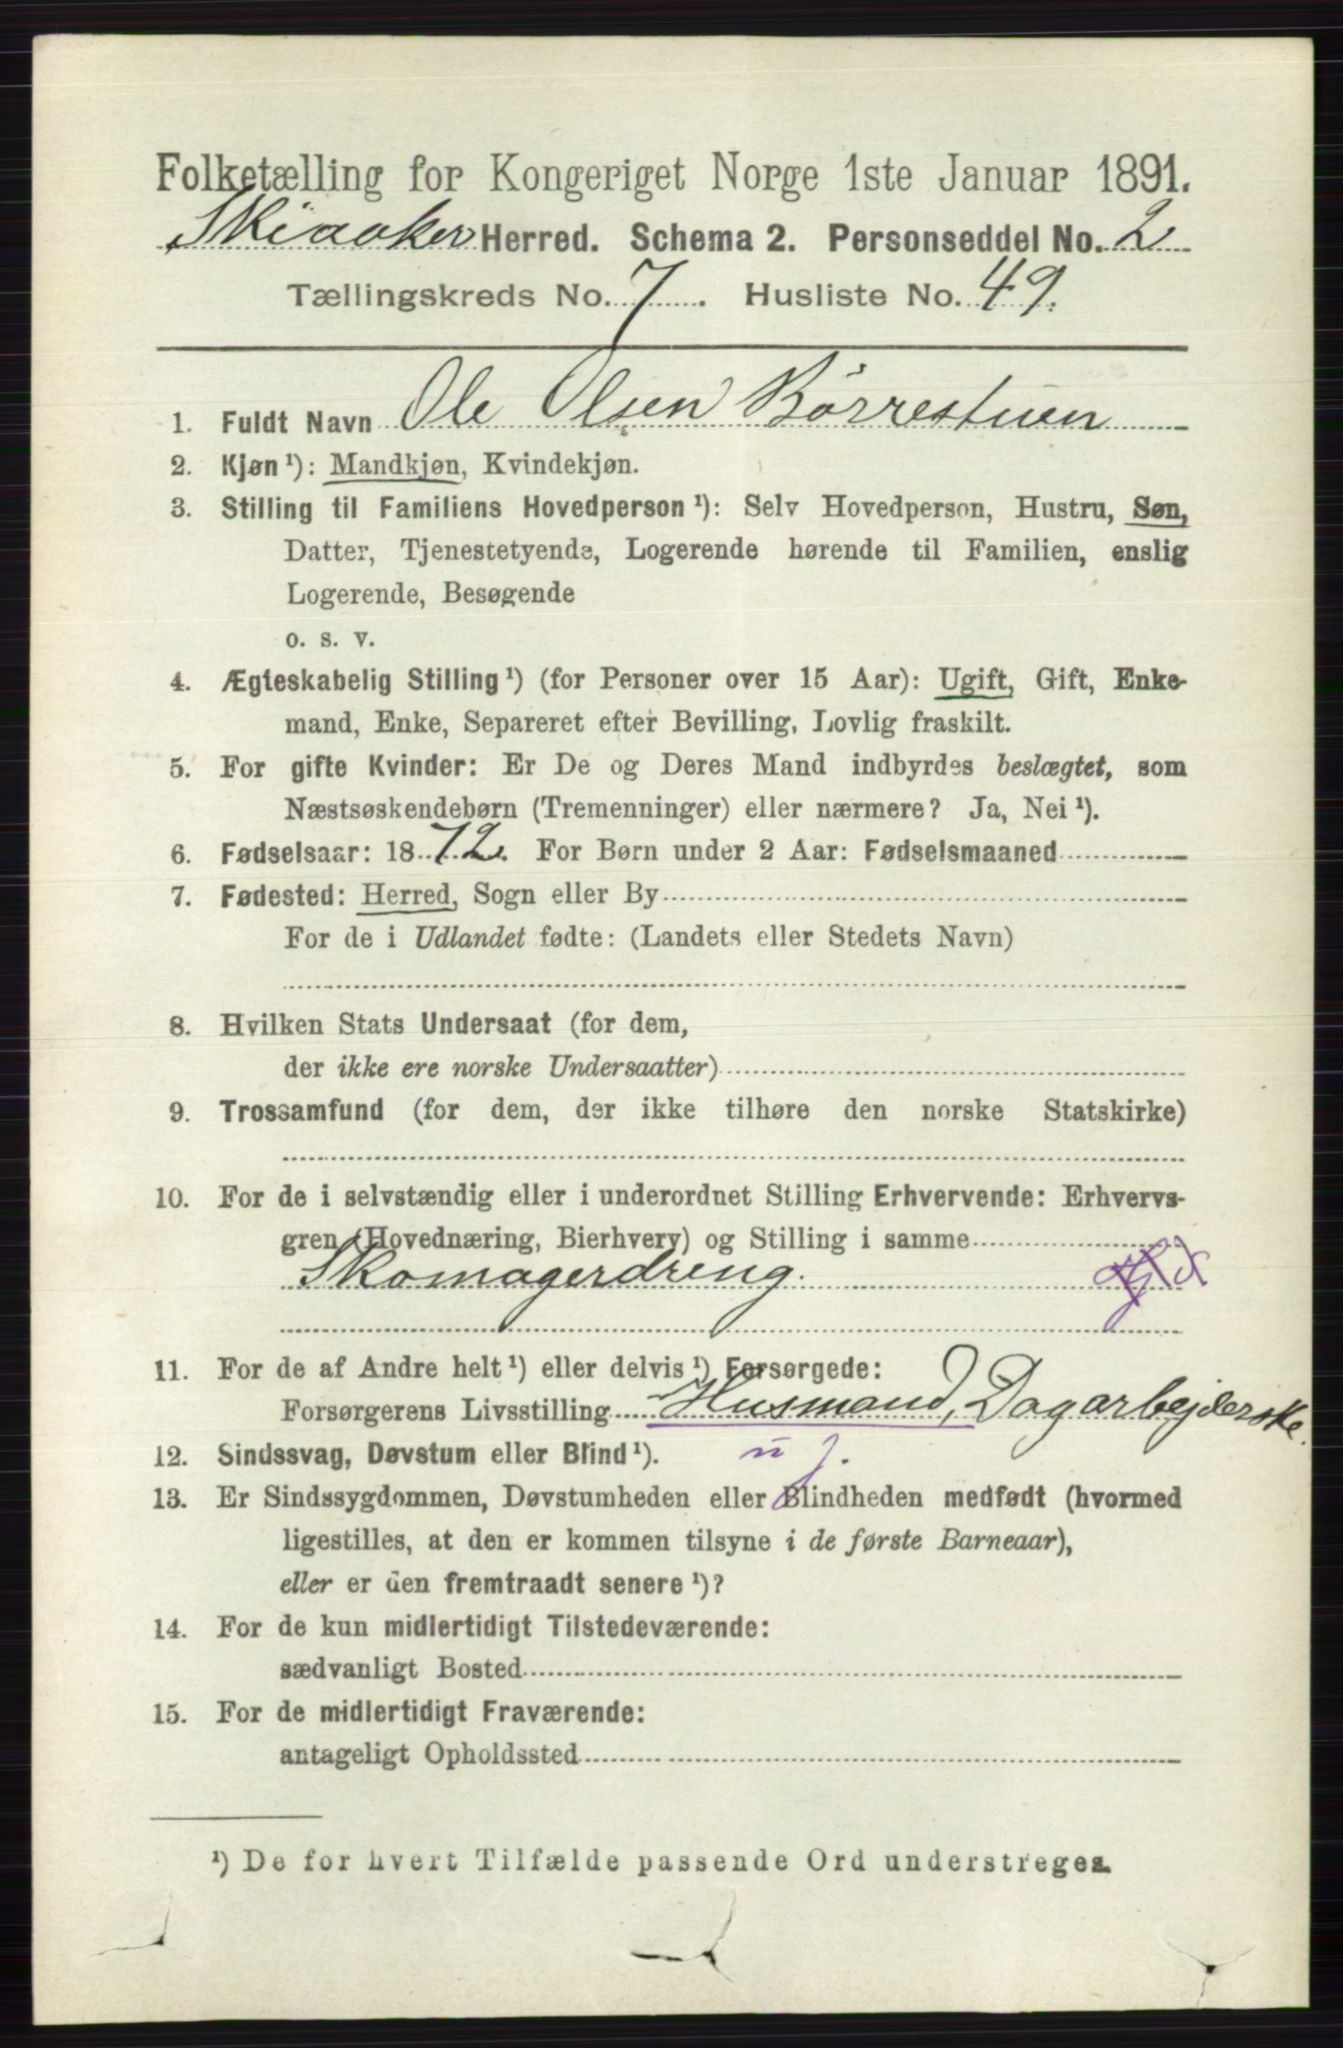 Folketælling for Kongeriget Norge 1ste Januar 1891.
Skiaaker Herred. Schema 2. Personseddel No. 2
Tællingskreds No. 7. Husliste No. 49.
1. Fuldt Navn Ole Olsen Börrestuen
2. Kjøn¹): Mandkjøn, Kvindekjøn.
3. Stilling til Familiens Hovedperson¹): Selv Hovedperson, Hustru, Søn,
Datter, Tjenestetyende, Logerende hørende til Familien, enslig
Logerende, Besøgende
o. s. v.
4. Ægteskabelig Stilling¹) (for Personer over 15 Aar): Ugift, Gift, Enke-
mand, Enke, Separeret efter Bevilling, Lovlig fraskilt.
5. For gifte Kvinder: Er De og Deres Mand indbyrdes beslægtet, som
Næstsøskendebørn (Tremenninger) eller nærmere? Ja, Nei¹).
6. Fødselsaar: 1872. For Børn under 2 Aar: Fødselsmaaned
7. Fødested: Herred, Sogn eller By
For de i Udlandet fødte: (Landets eller Stedets Navn)
8. Hvilken Stats Undersaat (for dem,
der ikke ere norske Undersaatter)
9. Trossamfund (for dem, der ikke tilhøre den norske Statskirke)
10. For de i selvstændig eller i underordnet Stilling Erhvervende: Erhvervs-
gren (Hovednæring, Bierhverv) og Stilling i samme
Skomagerdreng.
11. For de af Andre helt¹) eller delvis¹) Forsørgede:
Forsørgerens Livsstilling Husmand, Dagarbejderske.
12. Sindssvag, Døvstum eller Blind¹).
13. Er Sindssygdommen, Døvstumheden eller Blindheden medfødt (hvormed
ligestilles, at den er kommen tilsyne i de første Barneaar),
eller er den fremtraadt senere¹)?
14. For de kun midlertidigt Tilstedeværende:
sædvanligt Bosted
15. For de midlertidigt Fraværende:
antageligt Opholdssted
¹) De for hvert Tilfælde passende Ord understreges.